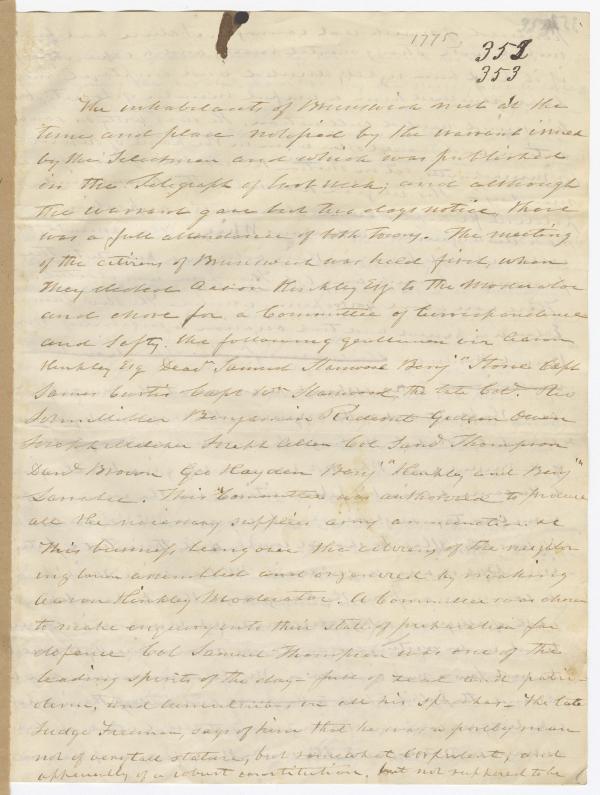 1775,
352
353
The inhabitants of Brunswick met at the
time and place notified by the warrant issued
by the Selectmen and which was published
in the Telegraph of last week; and although
the warrant gave but two days notice, there
was a full attendance of both Towns. The meeting
of the citizens of Brunswick was held first, when
they elected Aaron Hinkley Esq to the Moderator
and chose for a Committee of Correspondence
and Safty, the following gentlemen viz Aaron
Hinkley Esq Dean Samuel Stanwood Benjn Stone Capt
James Curtis Capt Wm Stanwood, the late Col.
John Miller Benjamin Rideout Gedeon Owen
Joseph Melcher Joseph Allen Col Saml Thompson
Danl Brown Geo Hayden Benjn Hinkley and Benjn
Larrabee. This Committee was authorized to procure
all the necessary supplies arms ammunition. &c
This business being over the citizens of the neighbor
ing town assembled and organized by making
Aaron Hinkley Moderator. A Committee was chosen
to make enquiry into their state of preparation for
defence Col Samuel Thompson was one of the
leading spirits of the day - full of zeal and patri-
otism, and in all his speeches - The late
Judge Freeman, says of him that he was a portly man
not of very tall stature, but somewhat corpulent, and
apparently of a robust constitution, but not supposed to be